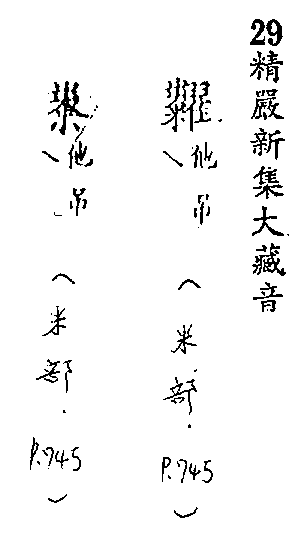 29精嚴新集大藏音
糶、他吊(米部.P.745)
、他吊」(米部.P.745)